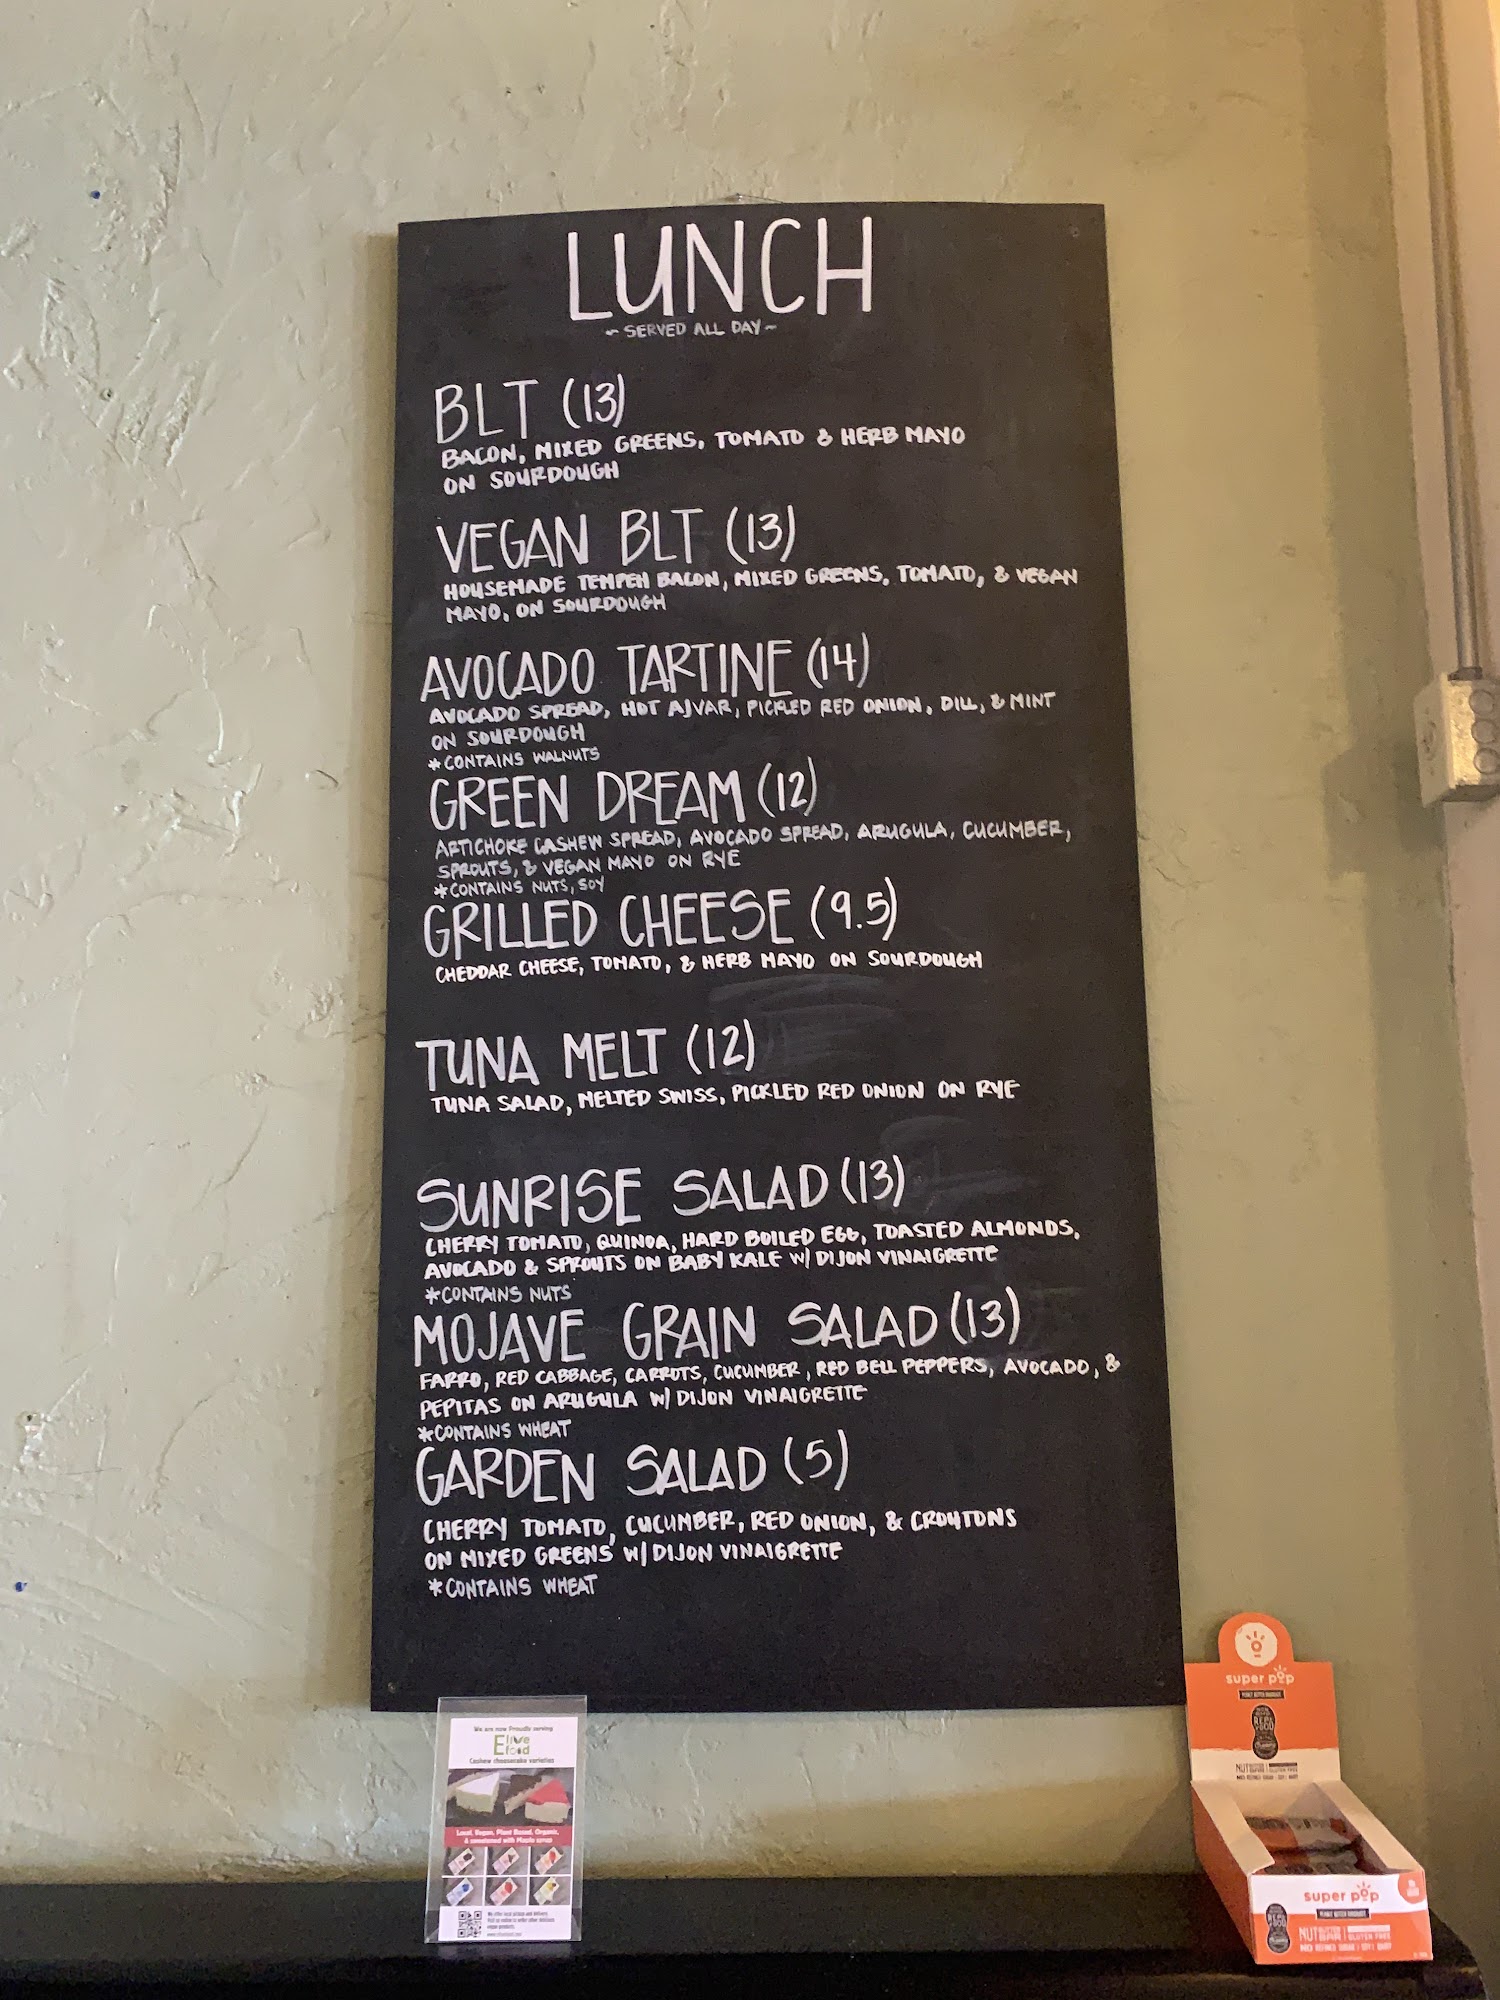 LUNCH
~ SERVED ALL DAY ~
BLT (13)
BACON, MIXED GREENS, TOMATO & HERB MAYO
ON SOURDOUGH
VEGAN BLT (13)
HOUSEMADE TEMPEH BACON, MIXED GREENS, TOMATO, & VEGAN
MAYO, ON SOURDOUGH
AVOCADO TARTINE (14)
AVOCADO SPREAD, HOT AJVAR, PICKLED RED ONION, DILL, & MINT
ON SOURDOUGH
*CONTAINS WALNUTS
GREEN DREAM (12)
ARTICHOKE CASHEW SPREAD, AVOCADO SPREAD, ARUGULA, CUCUMBER,
SPROUTS, & VEGAN MAYO ON RYE
*CONTAINS NUTS, SOY
GRILLED CHEESE (9.5)
CHEDDAR CHEESE, TOMATO, & HERB MAYO ON SOURDOUGH
TUNA MELT (12)
TUNA SALAD, MELTED SWISS, PICKLED RED ONION ON RYE
SUNRISE SALAD (13)
CHERRY TOMATO, QUINOA, HARD BOILED EGG, TOASTED ALMONDS,
AVOCADO & SPROUTS ON BABY KALE W/ DIJON VINAIGRETTE
*CONTAINS NUTS
MOJAVE GRAIN SALAD (13)
FARRO, RED CABBAGE, CARROTS, CUCUMBER, RED BELL PEPPERS, AVOCADO, &
PEPITAS ON ARUGULA W/ DIJON VINAIGRETTE
*CONTAINS WHEAT
GARDEN SALAD (5)
CHERRY TOMATO, CUCUMBER, RED ONION, & CROUTONS
ON MIXED GREENS W/ DIJON VINAIGRETTE
*CONTAINS WHEAT
We are now Proudly serving
Elive
food
Cashew cheesecake varieties
Local, Vegan, Plant Based, Organic,
& sweetened with Maple syrup
super pop
REAL
FOOD
GLUTEN FREE
super pop
NUT BUTTER BAR | GLUTEN FREE
NO REFINED SUGAR | SOY | DAIRY